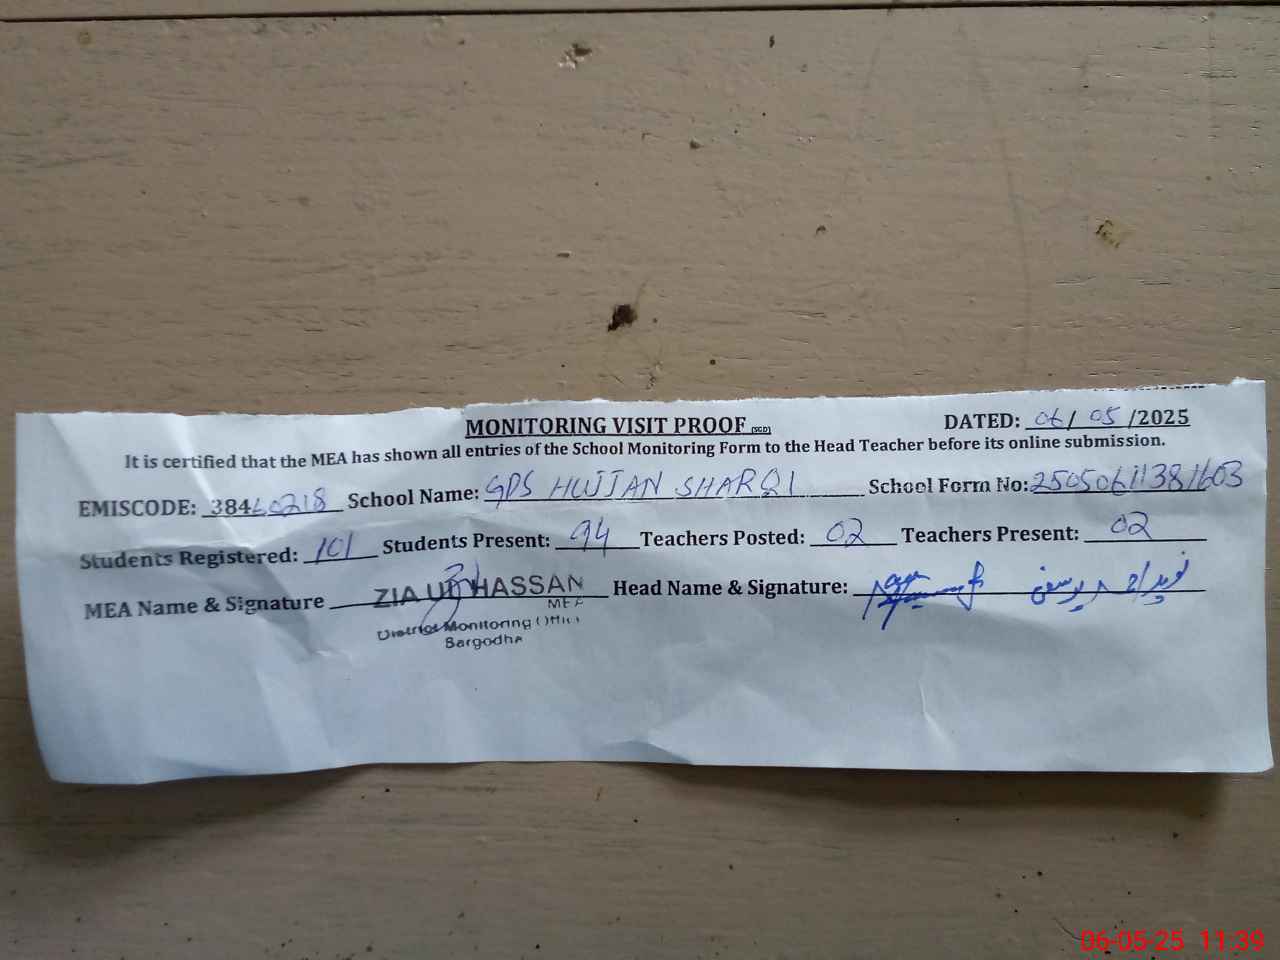 MONITORING VISIT PROOF (SGD) DATED: 06/05/2025
It is certified that the MEA has shown all entries of the School Monitoring Form to the Head Teacher before its online submission.
EMISCODE: 38460218 School Name: GPS HUJJAN SHARQI School Form No: 25050611381603
Students Registered: 101 Students Present: 94 Teachers Posted: 02 Teachers Present: 02
MEA Name & Signature ZIA UL HASSAN Head Name & Signature:
MEA
District Monitoring Office
Sargodha
06-05-25 11:39